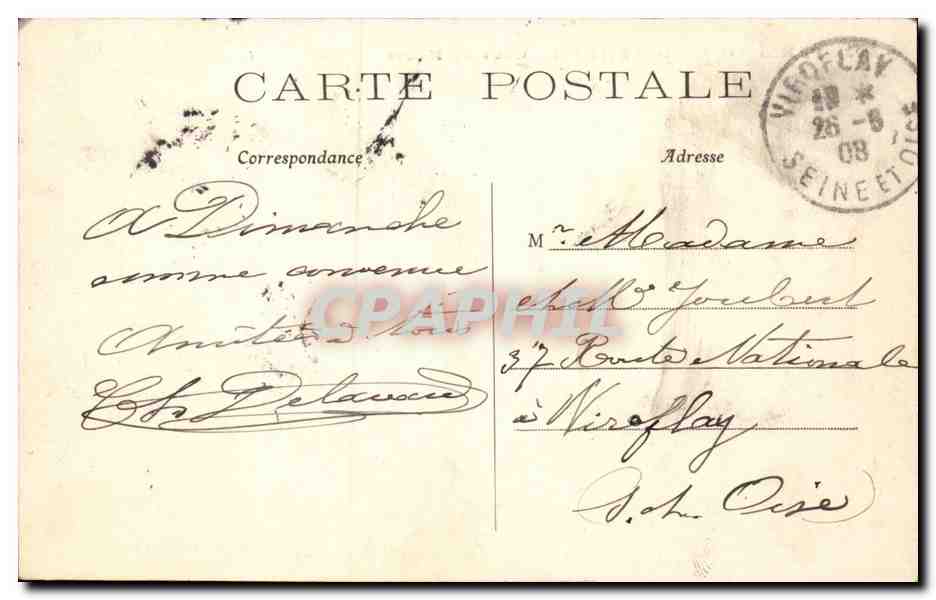 CARTE POSTALE
VIROFLAY
26 -8
08
SEINE ET OISE
Correspondance
A Dimanche
comme convenue
Amitiés à tous
Ch. Delavau
Adresse
Mr. Madame
Joubert
37 Route Nationale
à Viroflay
S. et Oise
CPAPHIL